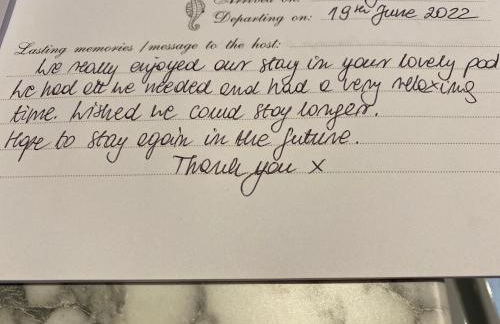 Departing on: 19th June 2022
Lasting memories / message to the host:
We really enjoyed our stay in your lovely pod
We had all we needed and had a very relaxing
time. Wished we could stay longer.
Hope to stay again in the future.
Thank you x